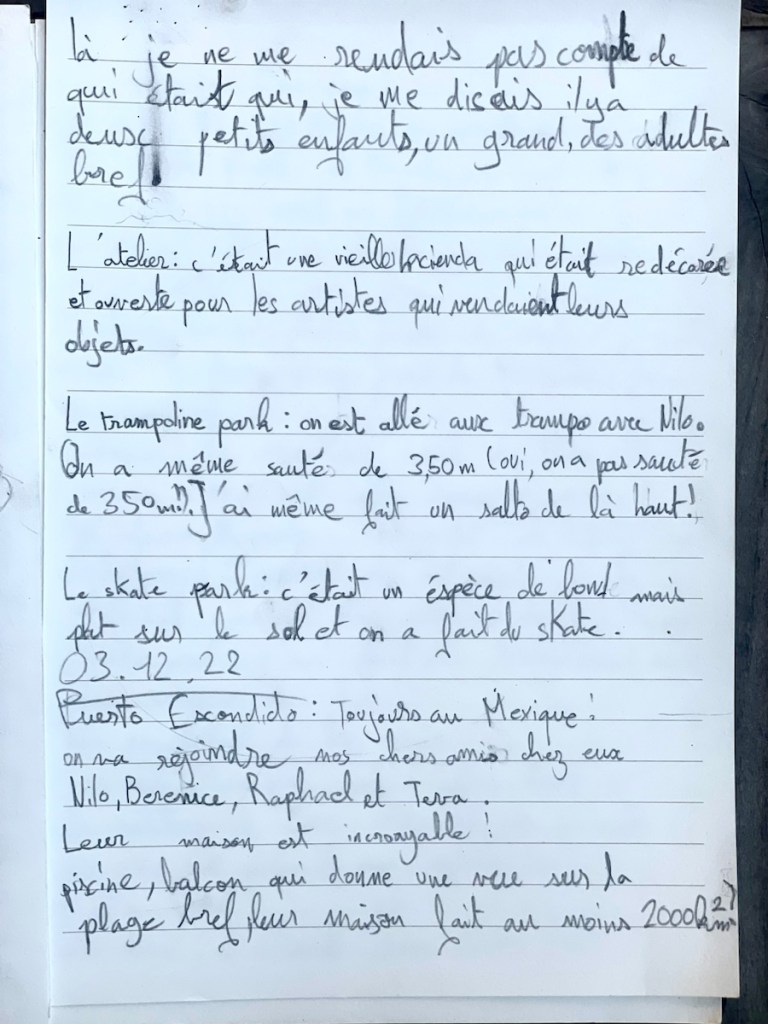 là je ne me rendais pas compte de
qui était qui, je me disais il y a
deux petits enfants, un grand, des adultes
bref.
L'atelier : c'était une vieille hacienda qui était redécorée
et ouverte pour les artistes qui vendaient leurs
objets.
Le trampoline park : on est allé aux trampo avec Nilo.
On a même sauté de 3,50 m (oui, on a pas sauté
de 350m!). J'ai même fait un salto de là haut!
Le skate park : c'était un éspèce de bowl mais
plat sur le sol et on a fait du skate.
03.12.22
Puerto Escondido : Toujours au Mexique :
on va rejoindre nos chers amis chez eux
Nilo, Berenice, Raphael et Teva.
Leur maison est incroayable !
piscine, balcon qui donne une vue sur la
plage bref, leur maison fait au moins 2000km²